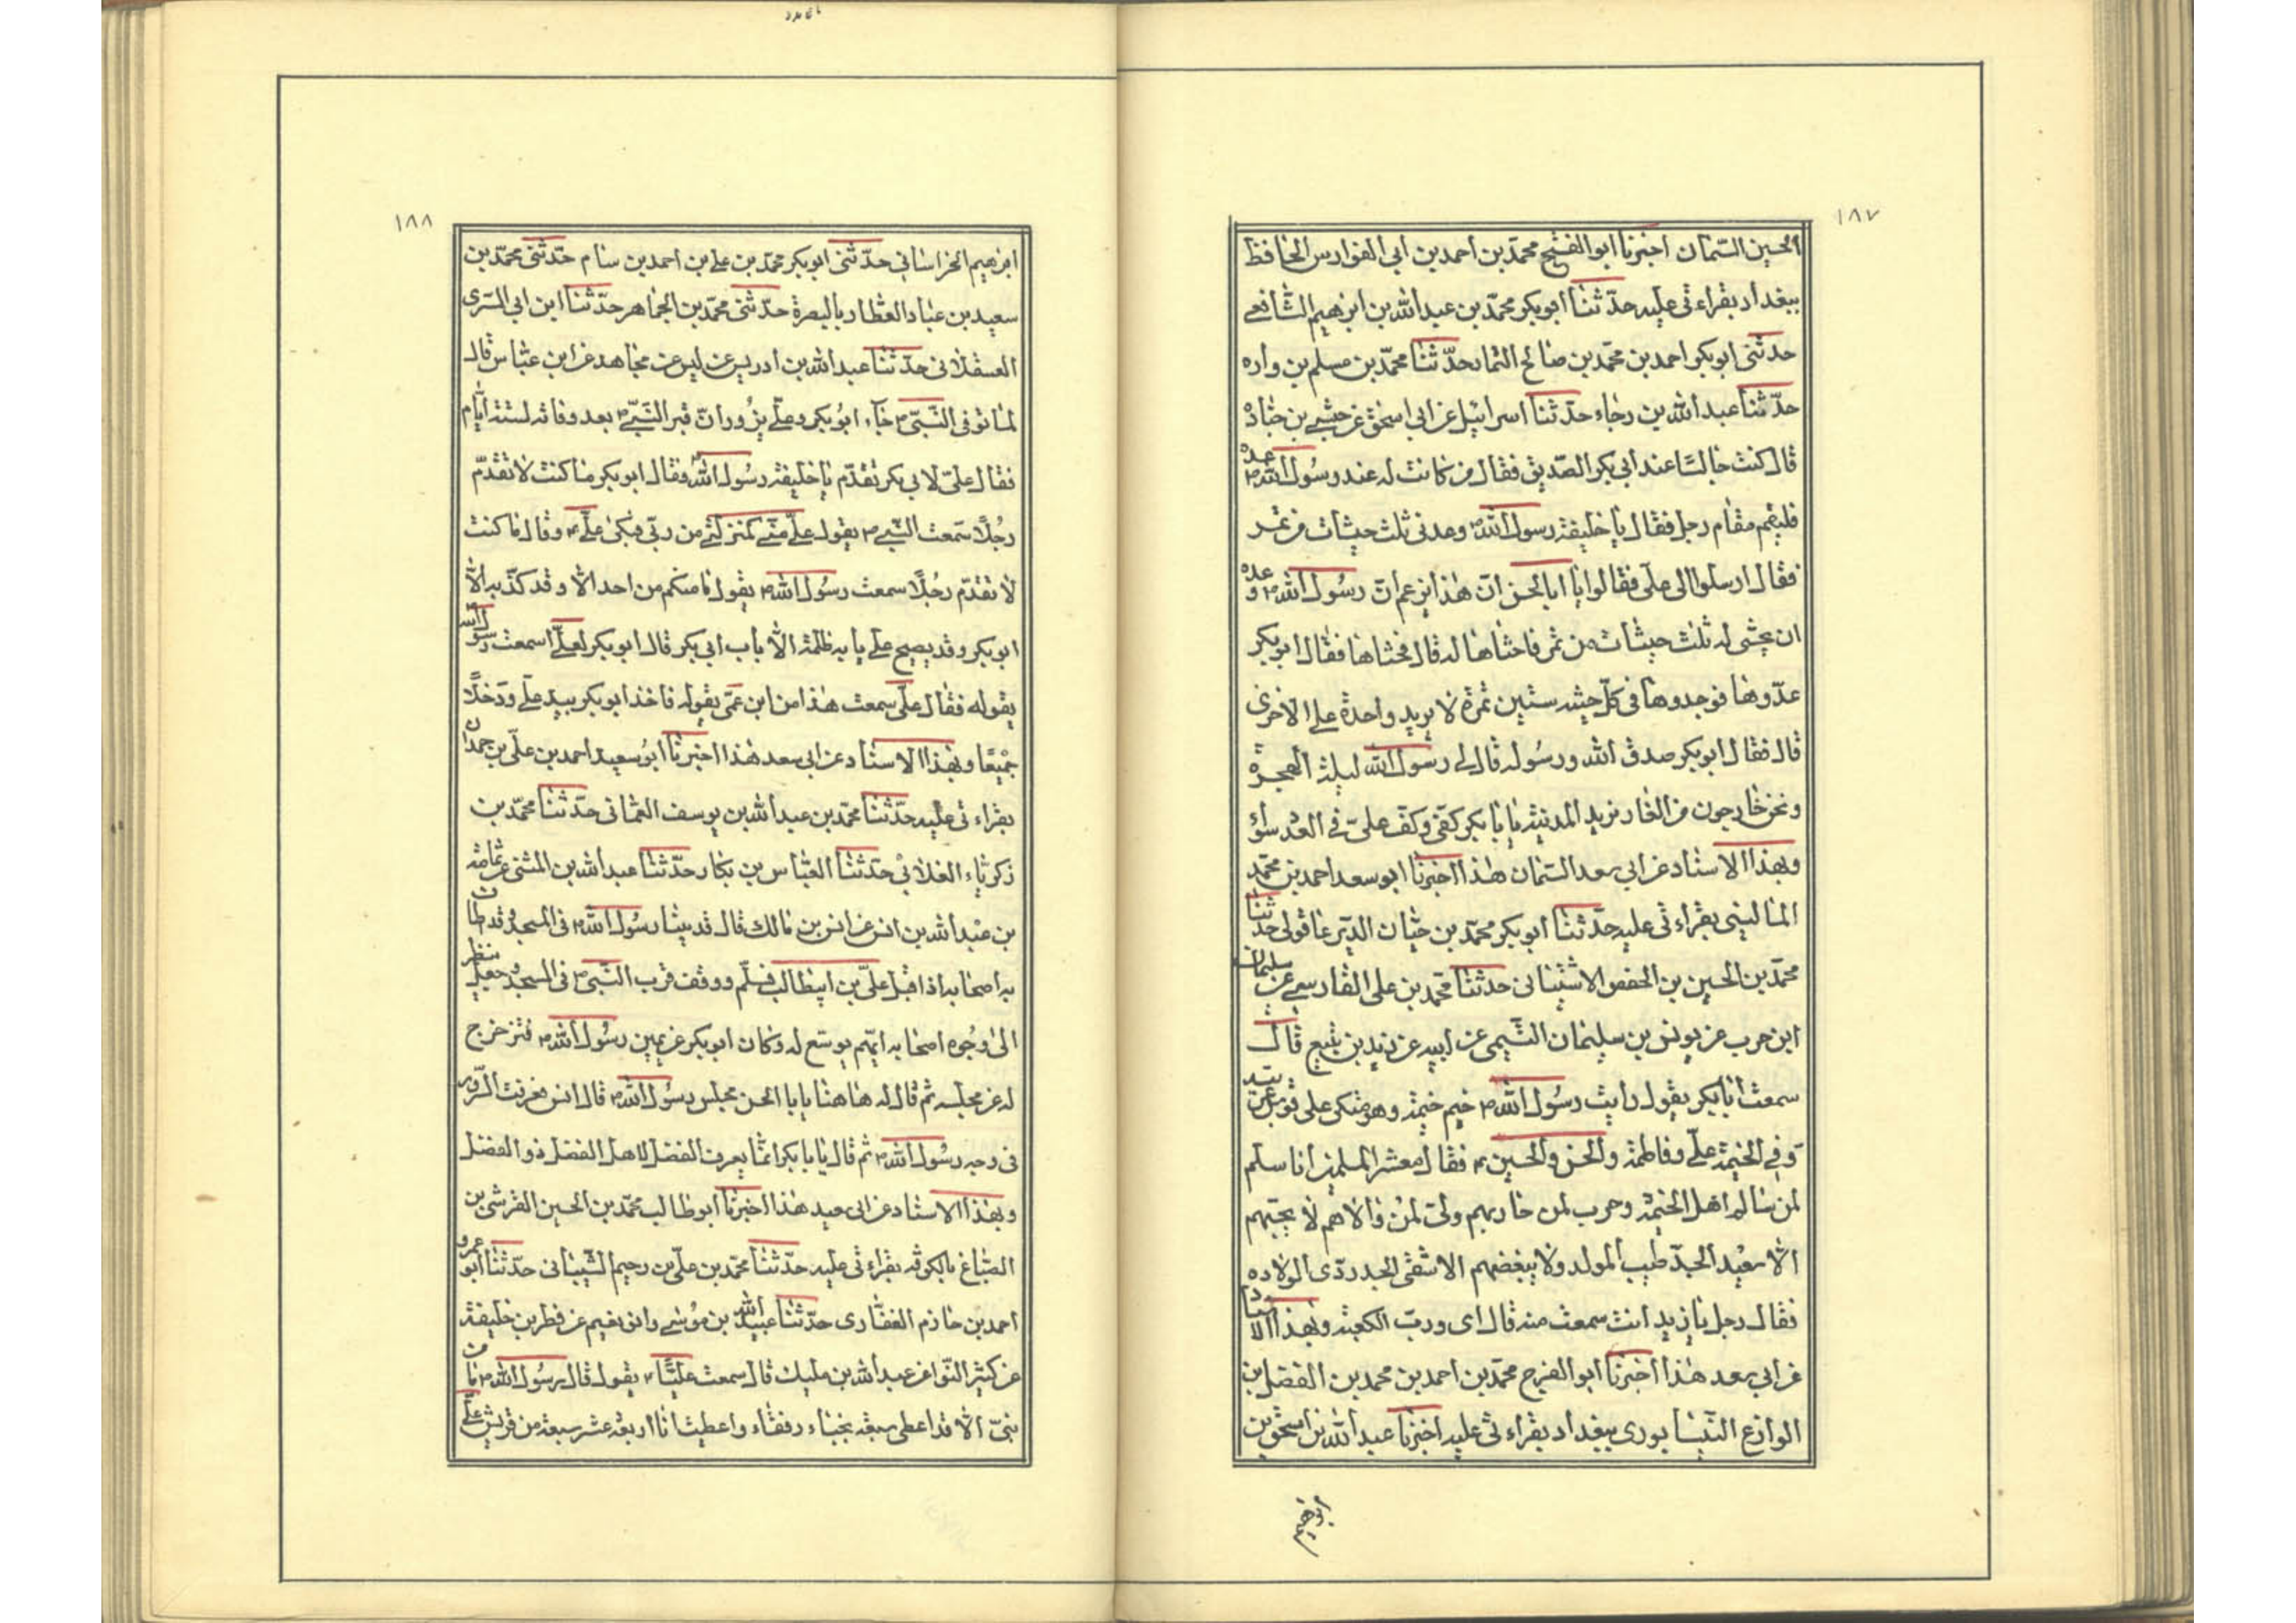 ١٨٧
الحسين السّمان اخبرنا ابو الفتح محمّد بن احمد بن ابى الفوارس الحافظ
ببغداد بقراءتى عليه حدّثنا ابو بكر محمّد بن عبد الله بن ابرهيم الشّافعى
حدثنى ابو بكر احمد بن محمّد بن صالح التمار حدّثنا محمّد بن مسلم بن واره
حدّثنا عبد الله بن رجاء حدّثنا اسرائيل عن ابى اسحق عن حبشى بن جناده
قال كنت جالسًا عند ابى بكر الصّديق فقال من كانت له عند رسول الله ص عده
فليقم مقام رجل فقال يا خليفة رسول الله ص وعدنى ثلث حيثات من تمر
فقال ارسلوا الى على فقالوا يا ابا الحسن انّ هذا يزعم انّ رسول الله ص وعده
ان يحثى له ثلث حيثات من تمر فاحثاها له قال فحثاها فقال ابو بكر
عدّوها فوجدوها فى كلّ حيثه ستّين تمرة لا يزيد واحدة على الاخرى
قال فقال ابو بكر صدق الله ورسوله قال لى رسول الله ليلة الهجرة
ونحن خارجون من الغار نريد المدينة يا با بكر كفّى وكفّ علىّ فى العدد سواء
وبهذا الاسناد عن ابى سعد السّمان هذا اخبرنا ابو سعد احمد بن محمّد
المالينى بقراءتى عليه حدّثنا ابو بكر محمّد بن حيّان الدّيرعاقولى حدّثنا
محمّد بن الحسين بن الحفص الاشنانى حدثنا محمّد بن على الفارسى عن سليمان
ابن حرب عن يونس بن سليمان التّيمى عن ابيه عن زيد بن يثيع قال
سمعت ابا بكر يقول رايت رسول الله ص خيّم خيمة وهو متكى على قوس عربيّه
وفى الخيمة علىّ وفاطمة والحسن والحسين ع فقال معشر المسلمين انا سلم
لمن سالم اهل الخيمة وحرب لمن حاربهم ولىّ لمن والاهم لا يحبّهم
الّا سعيد الجدّ طيب المولد ولا يبغضهم الا شقى الجد ردّى الولاده
فقال رجل يا زيد انت سمعت منه قال اى وربّ الكعبة وبهذا الاسناد
عن ابى سعد هذا اخبرنا ابو الفرج محمّد بن احمد بن محمد بن الفضل بن
الوازع النّيسابورى ببغداد بقراءتى عليه اخبرنا عبد الله بن اسحق بن
ابرهيم
١٨٨
ابرهيم الخراسانى حدّثنى ابو بكر محمّد بن على بن احمد بن سام حدّثنى محمّد بن
سعيد بن عباد العطّار بالبصرة حدّثنى محمّد بن الجماهر حدّثنا ابن ابى السّرى
العسقلانى حدّثنا عبد الله بن ادريس عن ليس عن مجاهد عن ابن عبّاس قال
لما توفى النّبىّ ص جآء ابو بكر وعلى يزوران قبر النّبىّ ص بعد وفاته لستة ايّام
فقال علىّ لابى بكر تقدّم يا خليفة رسول الله ص فقال ابو بكر ما كنت لا تقدّم
رجلًا سمعت النّبى ص يقول علىّ منّى كمنزلتى من ربّى فبكى علىّ ع وقال ما كنت
لا تقدّم رجلًا سمعت رسول الله ص يقول ما منكم من احد الّا وقد كذّبه الّا
ابو بكر وقد يصبح على بابه ظلمة الّا باب ابى بكر قال ابو بكر لعلىّ اسمعت رسول الله
يقوله فقال علىّ سمعت هذا من ابن عمّى يقوله فاخذ ابو بكر بيد على ودخلا
جميعًا وبهذا الاسناد عن ابى سعد هذا اخبرنا ابو سعيد احمد بن علىّ بن حمدان
بقراءتى عليه حدّثنا محمّد بن عبد الله بن يوسف العمانى حدّثنا محمّد بن
زكريّاء الغلابى حدّثنا العبّاس بن بكار حدّثنا عبد الله بن المثنى عن ثمامة
بن عبد الله بن انس عن انس بن مالك قال قد بينا رسول الله ص فى المسجد وقد طاف
به اصحابه اذ اقبل علىّ بن ابيطالب فسلّم ووقف قرب النّبىّ ص فى المسجد وجعل ينظر
الى وجوه اصحابه ايّهم يوسّع له وكان ابو بكر عن يمين رسول الله ص فتزحزح
له عن مجلسه ثم قال له هاهنا يا با الحسن مجلس رسول الله ص قال انس فعرفت السّرور
فى وجه رسول الله ص ثم قال يا با بكر انّما يعرف الفضل لاهل الفضل ذو الفضل
وبهذا الاسناد عن ابى سعيد هذا اخبرنا ابو طالب محمّد بن الحسين القرشى بن
الصبّاغ بالكوفه بقراءتى عليه حدّثنا محمّد بن علىّ بن رحيم الشّيبانى حدّثنا ابو عمرو
احمد بن حازم الغفّارى حدّثنا عبيد الله بن موسى وابى نعيم عن فطر بن خليفة
عن كثير النّواء عن عبد الله بن مليك قال سمعت عليًّا ع يقول قال رسول الله ص ما من
نبىّ الّا قد اعطى سبعة نجباء رفقاء واعطيت انا اربعة عشر سبعة من قريش علىّ